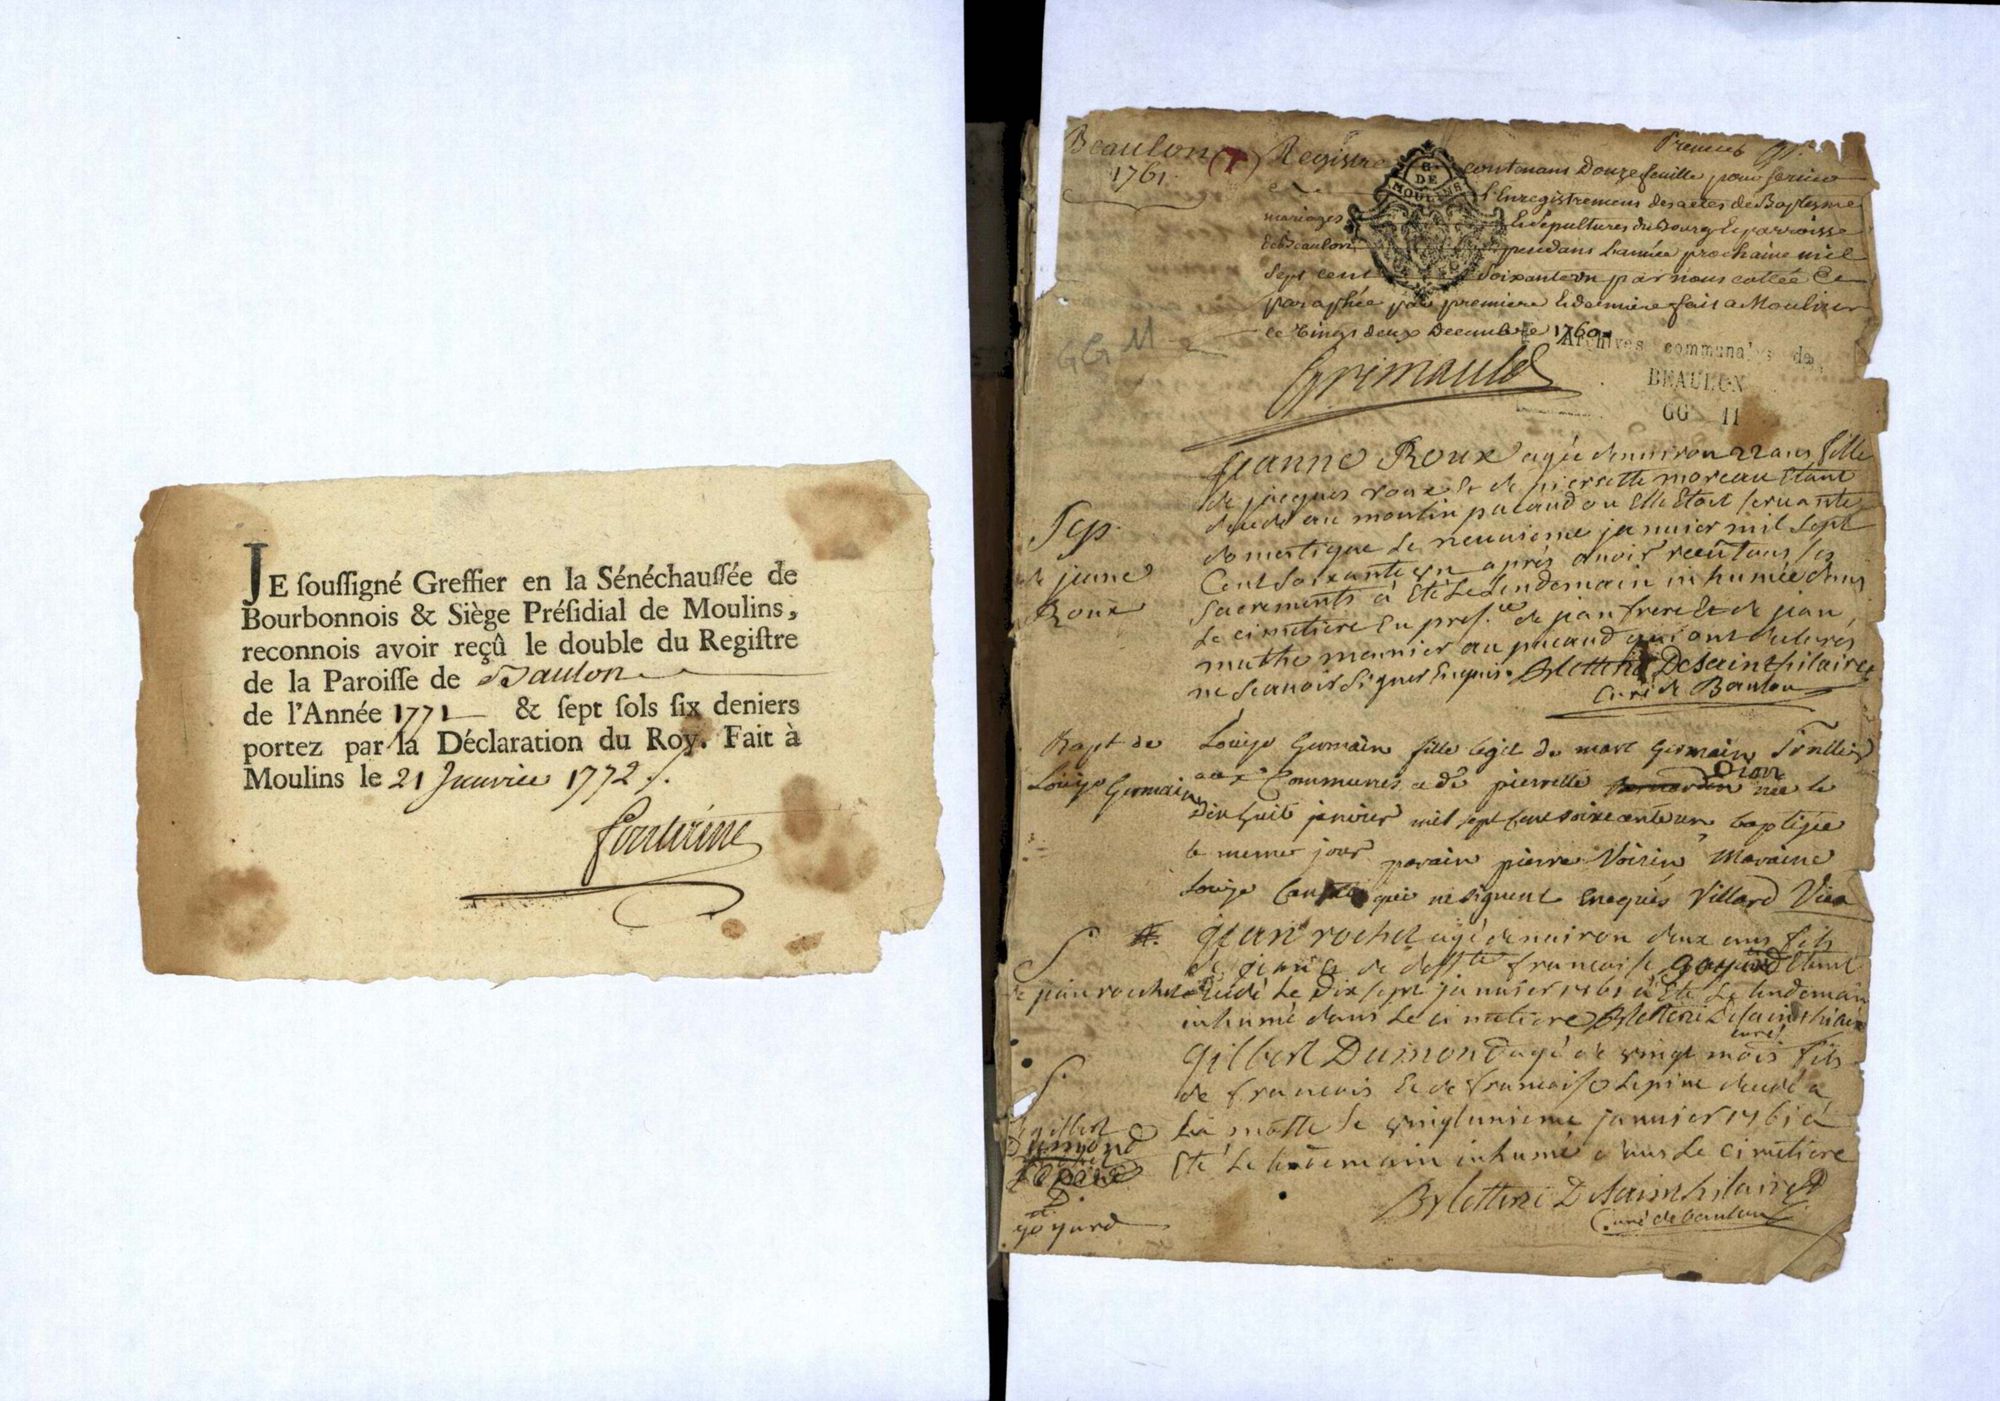 JE soussigné Greffier en la Sénéchaussée de
Bourbonnois & Siège Présidial de Moulins,
reconnois avoir reçû le double du Registre
de la Paroisse de Baulon
de l'Année 1771 & sept sols six deniers
portez par la Déclaration du Roy. Fait à
Moulins le 21 Janvier 1772
Beaulon (7) Registre contenans Douze feuille pour servir
1761
G DE MOULINS
l'Enregistremens des actes de Baptesme
mariages & Sepultures du Bourg & parroisse
de Beaulon pendans l'année prochaine mil
sept cent soixante un par nous cottée &
paraphée par premiere & derniere fais a Moulins
ce vings deux Decembre 1760
Grimauld
GG 11
Archives communales de
BEAULON
GG 11
Sep.
de jeanne
Roux
jeanne Roux agée denviron 22 ans fille
de jacques roux et de pierrette moreau Etant
decedé au moulin pacaud ou Elle Etoit servante
domestique le neuvieme janvier mil sept
Cent soixante un apres avoir recu tous les
sacrements à Eté le lendemain inhumée dans
le cimetiere En pres.ce de jean frere Et de jean
mathe meunier au pacaud qui ont declarés
ne scavoir signer Enquis. DeSainthilaire
Curé de Baulon
Bapt de
Louise Germain
Louise Germain fille legit de marc Germain
aux Communes & de pierrette Dion née le
Dix huit janvier mil sept cent soixante un baptisée
le meme jour parain pierre Voisin Maraine
Louise qui ne signent Enequis Villard Vica
S
de jean rochet
jean rochet agé denviron deux ans fils
de jean & de deff.te francoise goyard Etant
decedé Le Dix sept janvier 1761 à Eté Le lendemain
inhumé dans Le cimetiere DeSainthilaire
curé
S
gilbert
Dumond
goyard
gilbert Dumond agé de vingt mois fils
de francois Et de francoise Lepine decedé a
La motte le vingtunieme janvier 1761 à
Eté Le lendemain inhumé dans Le cimetiere
DeSainthilaire
Curé de baulon